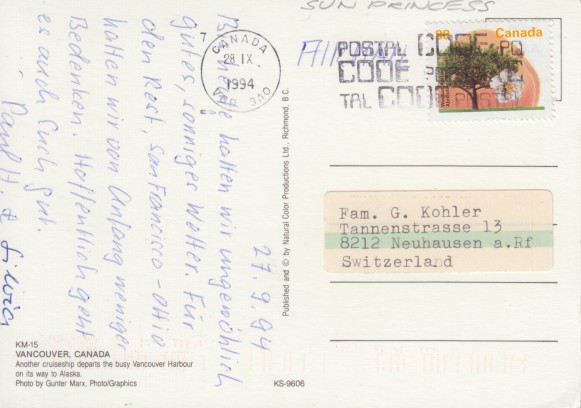 SUN PRINCESS
88 Canada
CANADA
28 IX
1994
POSTAL CODE PO
CODE
TAL CODE POSTAL
27.9.94
Bis heute hatten wir ungewöhlich
gutes, sonniges Wetter. Für
den Rest, San Francisco -
hatten wir von Anfang weniger
Bedenken. Hoffentlich geht
es auch Euch gut.
Paul H. & Silvia
Published and © by Natural Color Productions Ltd., Richmond, B.C.
Fam. G. Kohler
Tannenstrasse 13
8212 Neuhausen a.Rf
Switzerland
KM-15
VANCOUVER, CANADA
Another cruiseship departs the busy Vancouver Harbour
on its way to Alaska.
Photo by Gunter Marx, Photo/Graphics
KS-9606